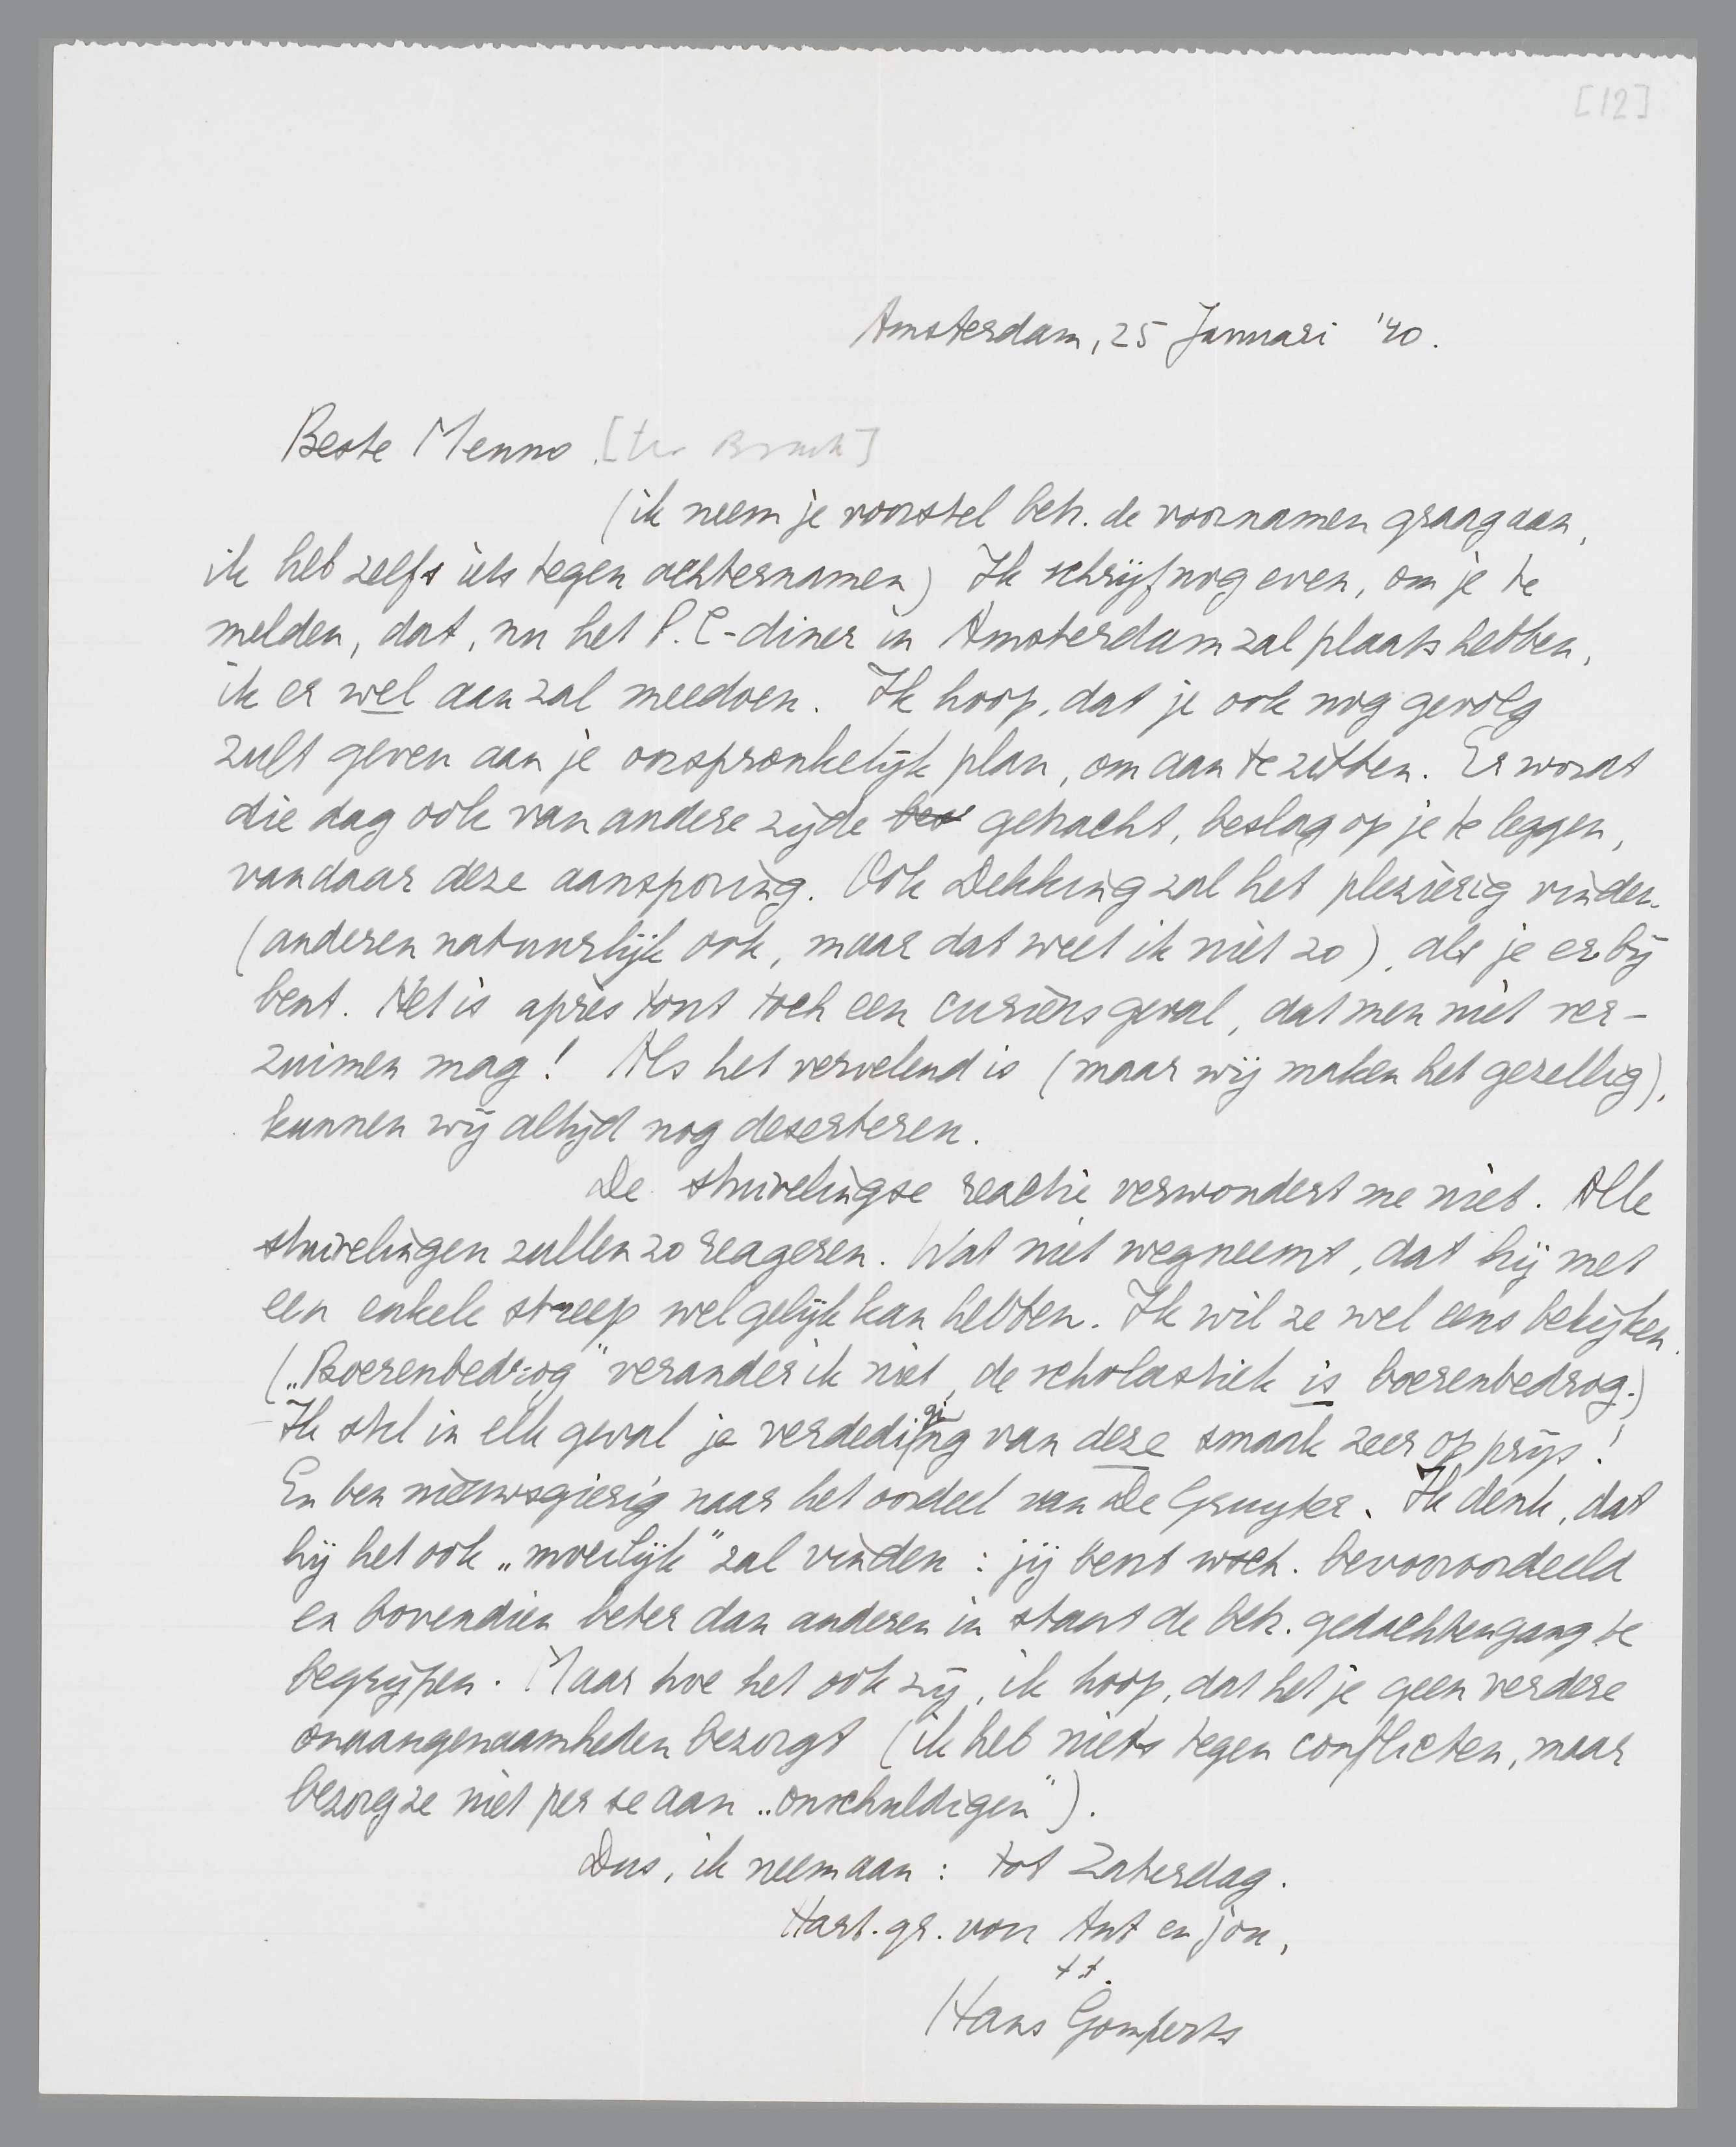 [12]
Amsterdam, 25 Januari '40.
Beste Menno [ter Braak]
(ik neem je voorstel betr. de voornamen graag aan,
ik heb zelfs iets tegen achternamen) Ik schrijf nog even, om je te
melden, dat, nu het P.C-diner in Amsterdam zal plaats hebben,
ik er wel aan zal meedoen. Ik hoop, dat je ook nog gevolg
zult geven aan je oorspronkelijk plan, om aan te zitten. Er wordt
die dag ook van andere zijde bes getracht, beslag op je te leggen,
vandaar deze aansporing. Ook Dekking zal het plezierig vinden
(anderen natuurlijk ook, maar dat weet ik niet zo), als je erbij
bent. Het is après tout toch een curieus geval, dat men niet ver-
zuimen mag! Als het vervelend is (maar wij maken het gezellig),
kunnen wij altijd nog deserteren.
De stuivelingse reactie verwondert me niet. Alle
stuivelingen zullen zo reageren. Wat niet wegneemt, dat hij met
een enkele streep wel gelijk kan hebben. Ik wil ze wel eens bekijken.
(„Boerenbedrog" verander ik niet, de scholastiek is boerenbedrog.)
Ik stel in elk geval je verdediging van deze smaak zeer op prijs!
En ben nieuwsgierig naar het oordeel van De Gruyter. Ik denk, dat
hij het ook „moeilijk" zal vinden: jij bent wsch. bevooroordeeld
en bovendien beter dan anderen in staat de betr. gedachtengang te
begrijpen. Maar hoe het ook zij, ik hoop, dat het je geen verdere
onaangenaamheden bezorgt (ik heb niets tegen conflicten, maar
bezorg ze niet per se aan „onschuldigen").
Dus, ik neem aan: tot Zaterdag.
Hart. gr. van Ant en jou,
t.t.
Hans Gomperts